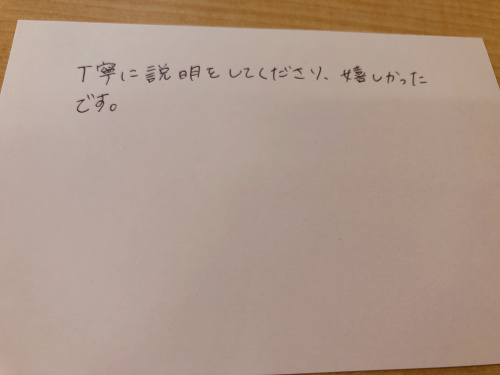 丁寧に説明をしてくださり、嬉しかった
です。